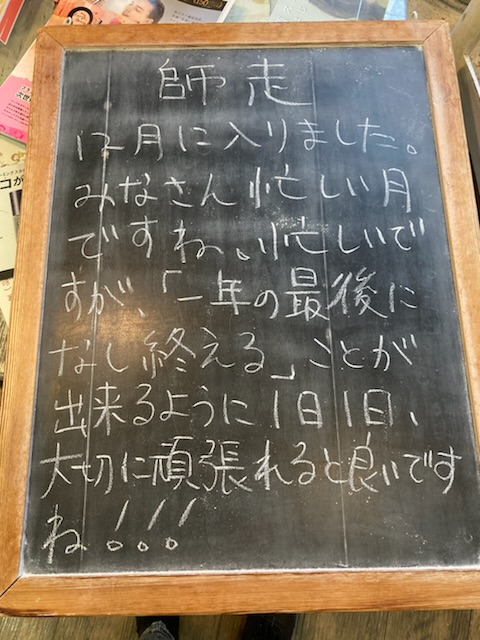 師走
12月に入りました。
みなさん忙しい月
ですね。忙しいで
すが、「一年の最後に
なし終える」ことが
出来るように1日1日、
大切に頑張れると良いです
ね!!!